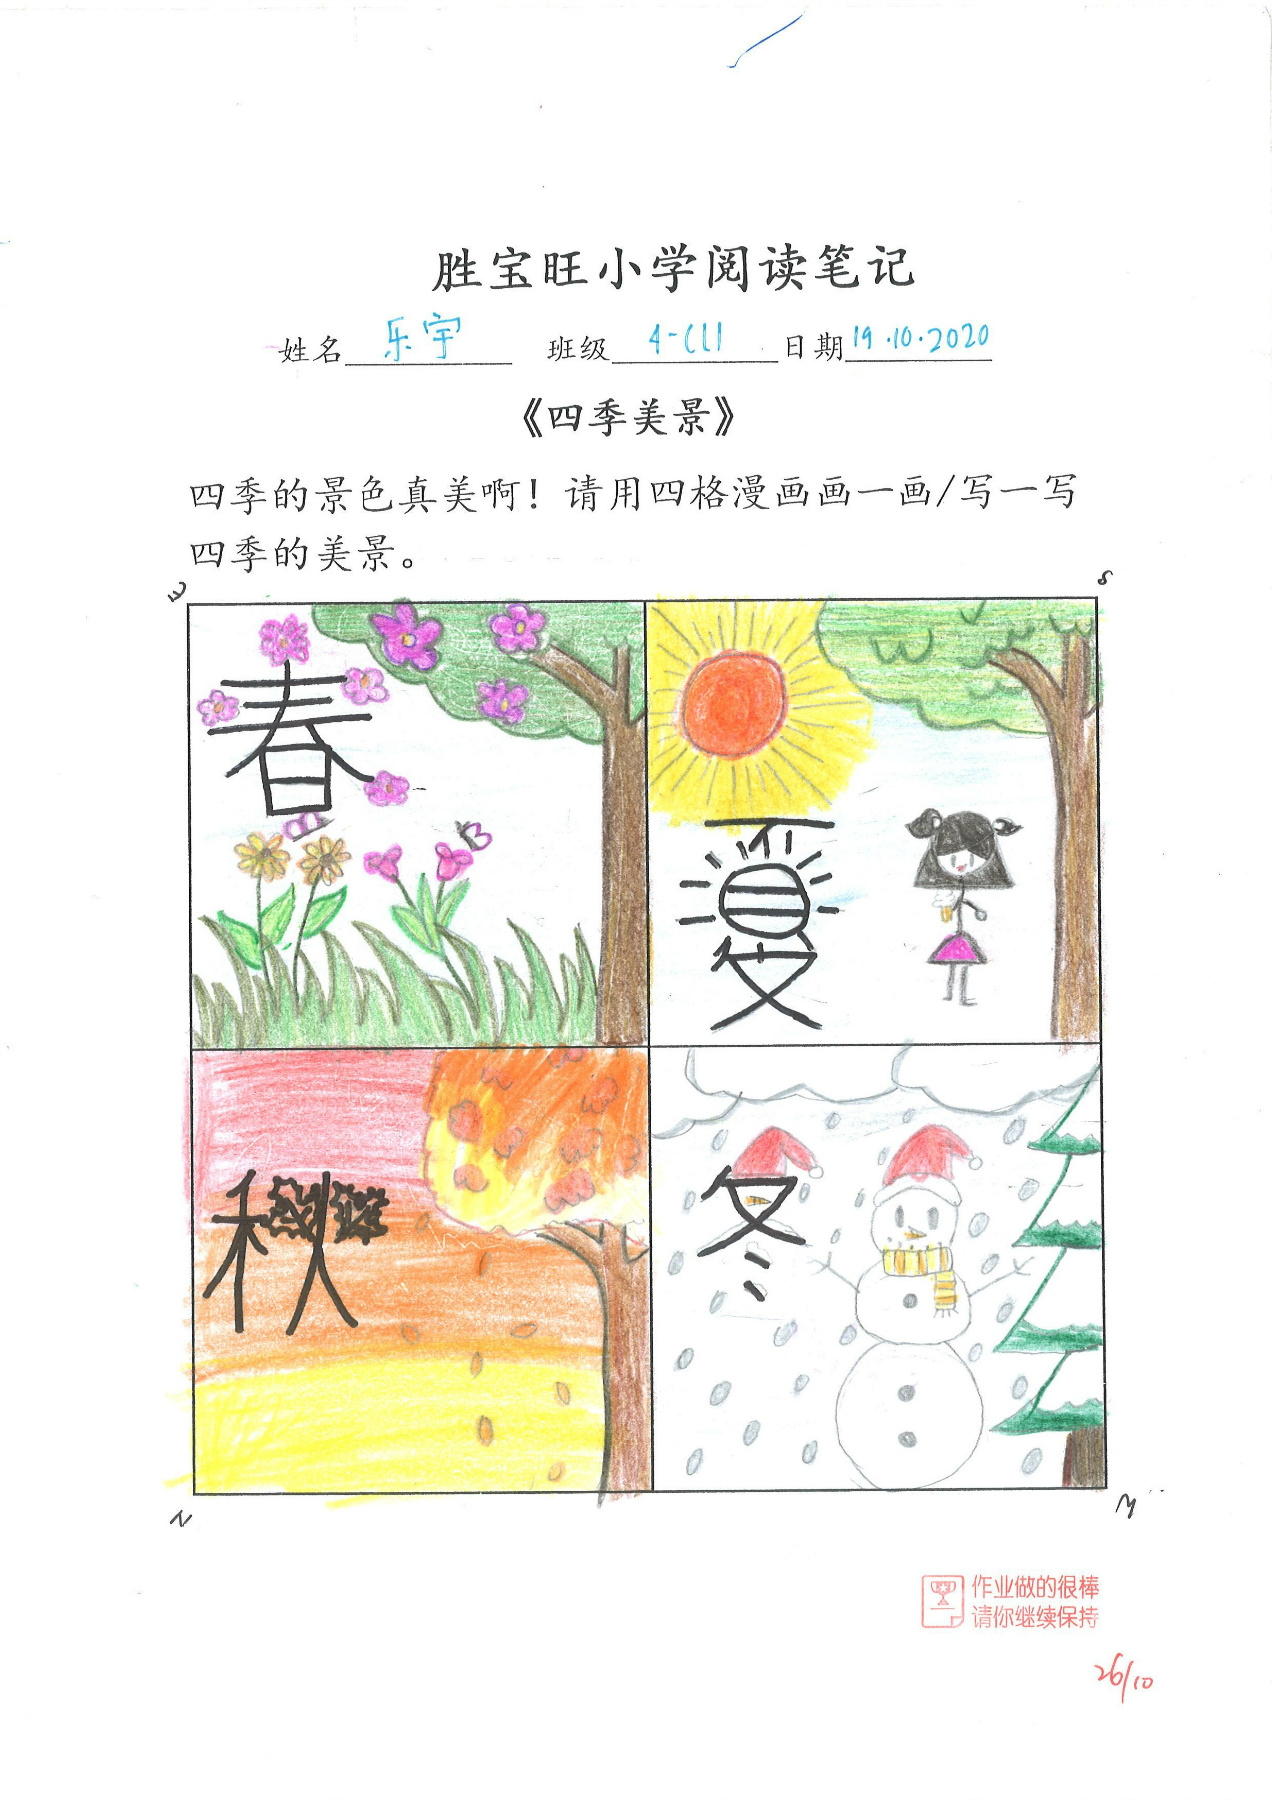 胜宝旺小学阅读笔记
姓名 乐宇 班级 4-(1) 日期 19.10.2020
《四季美景》
四季的景色真美啊！请用四格漫画画一画/写一写
四季的美景。
春
夏
秋
冬
作业做的很棒
请你继续保持
26/10